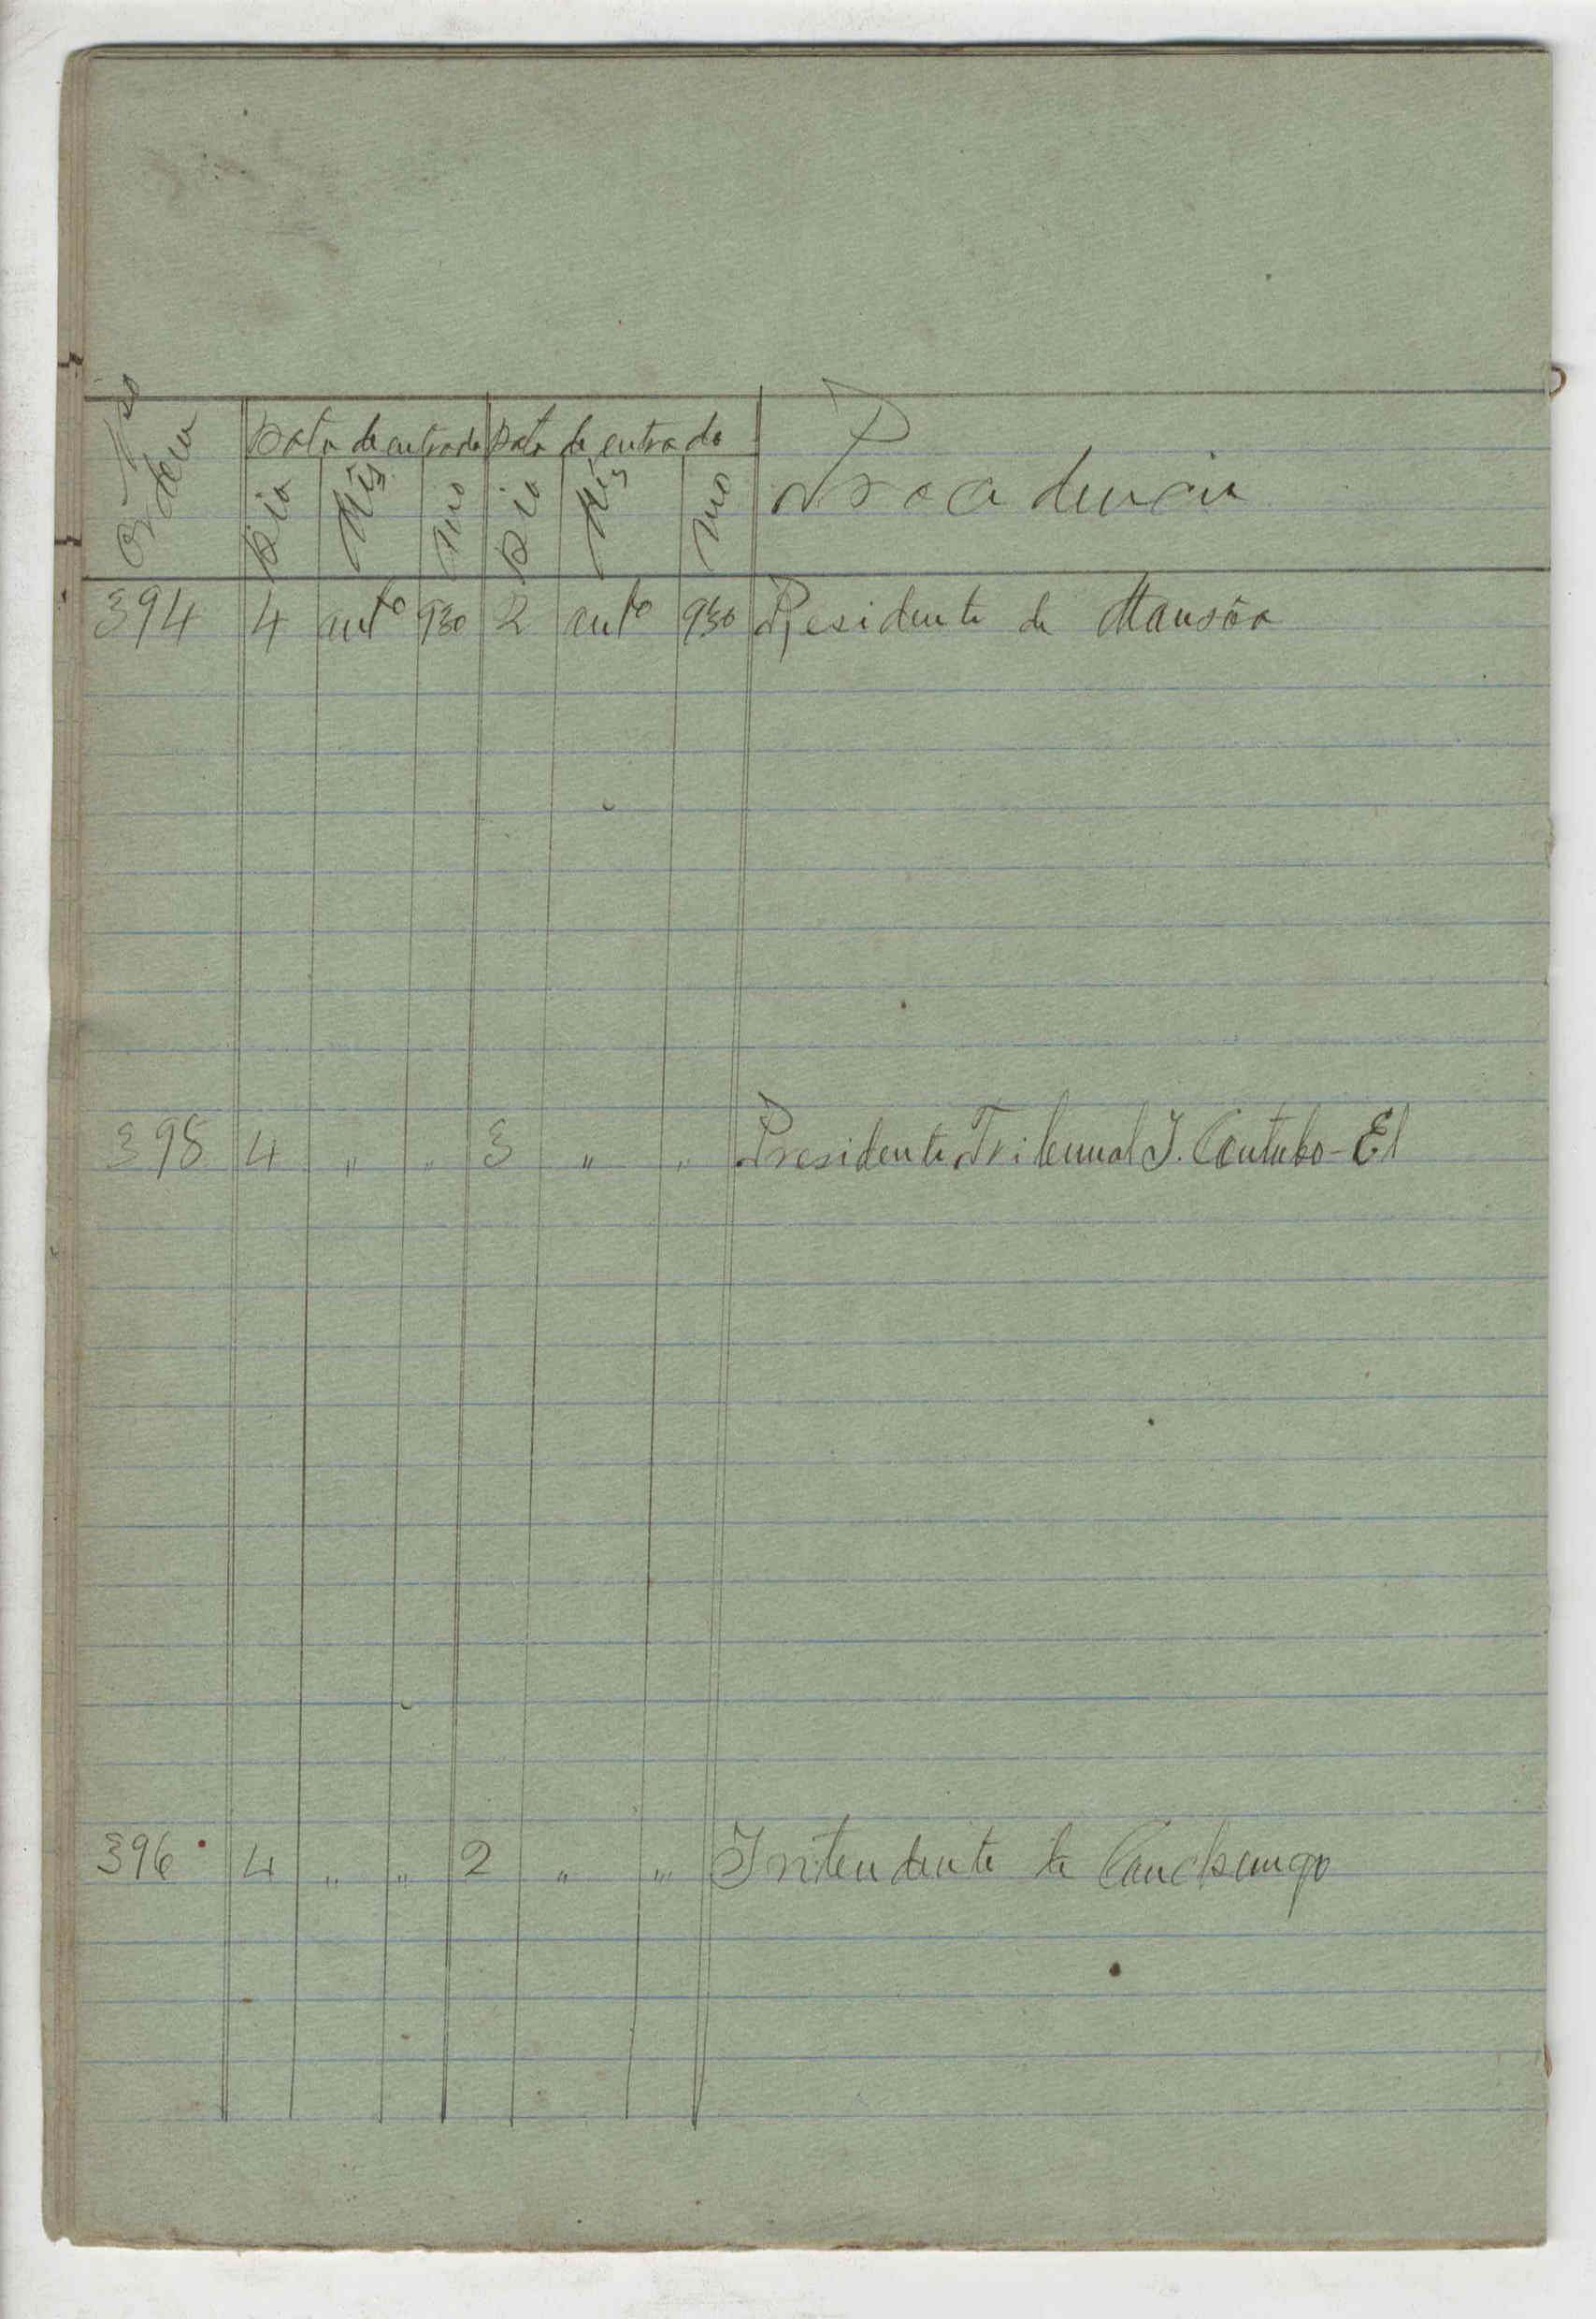 Nº de Ordem
Data de entrada Data de entrada
Dia Mês Ano Dia Mês Ano Procedencia
394 4 outº 930 2 outº 930 Residente de Mansôa
395 4 " " 3 " " Presidente Tribunal I. Contubo-El
396 4 " " 2 " " Intendente de Canchungo